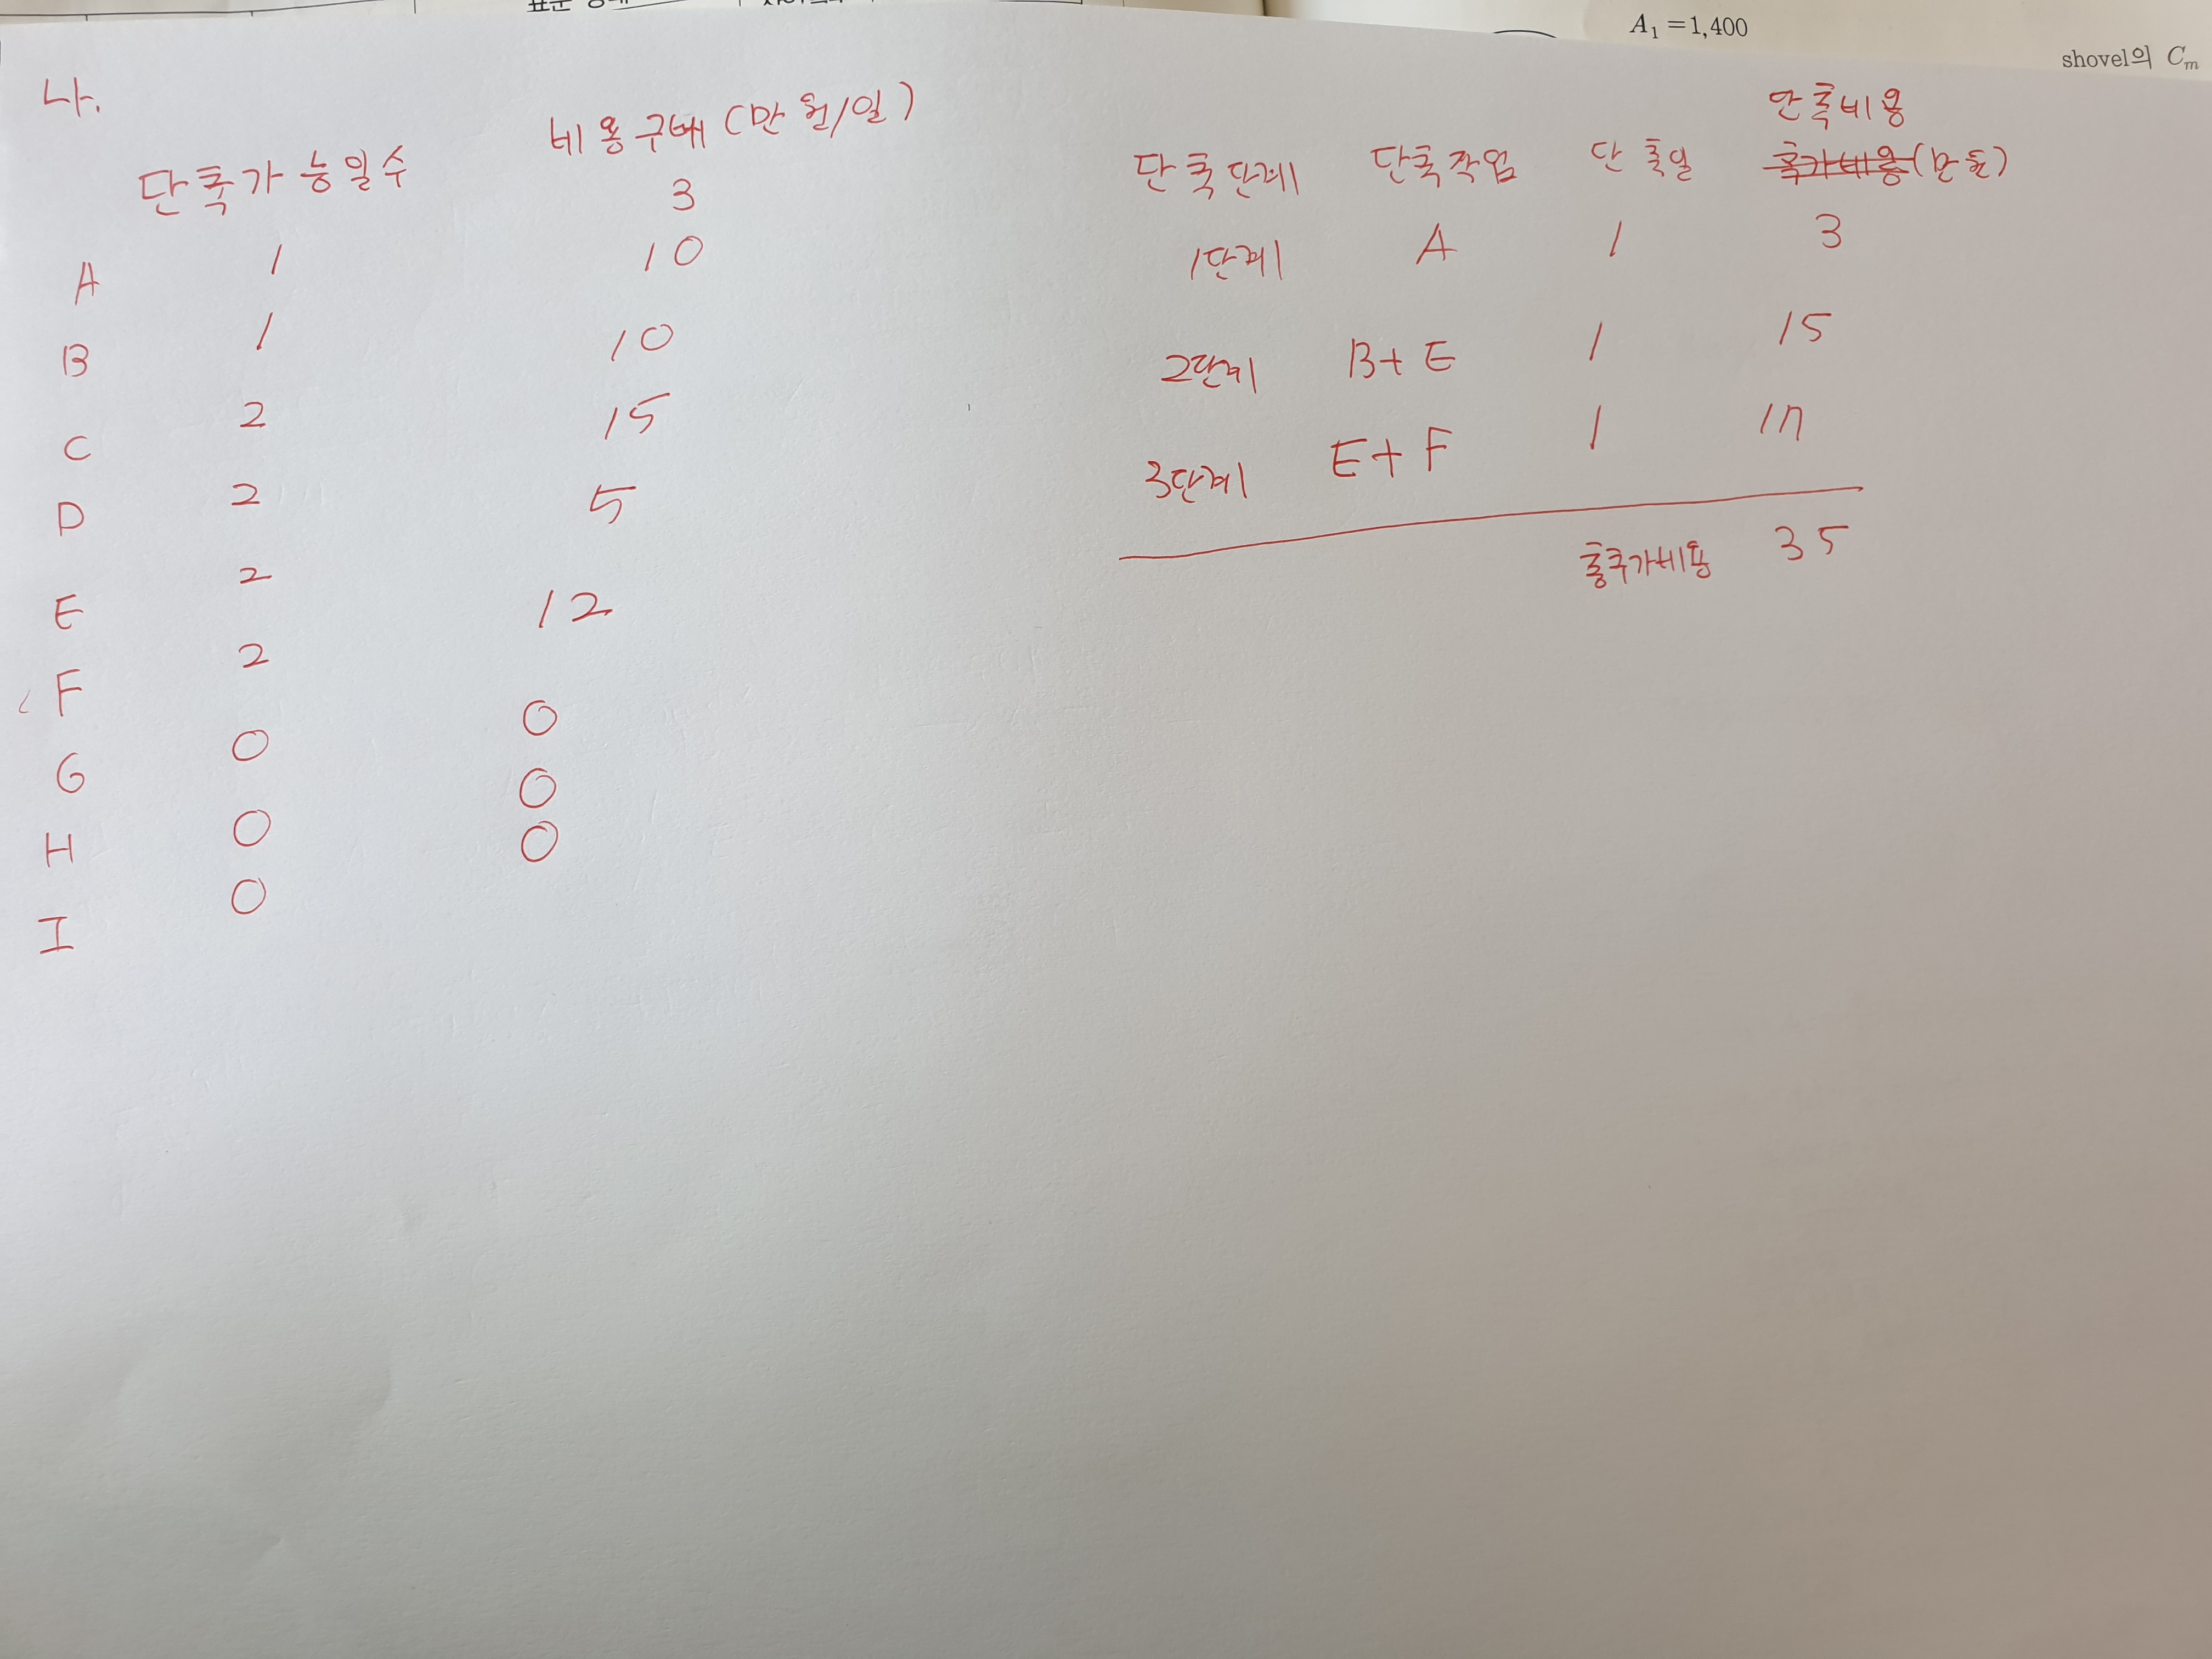 A₁ = 1,400
shovel의 Cₘ
나.
단축가능일수 비용구배(만원/일)
A 1 3
B 1 10
C 2 10
D 2 15
E 2 5
F 2 12
G 0 0
H 0 0
I 0 0
단축비용
단축단계 단축작업 단축일 추가비용(만원)
1단계 A 1 3
2단계 B+E 1 15
3단계 E+F 1 17
총추가비용 35